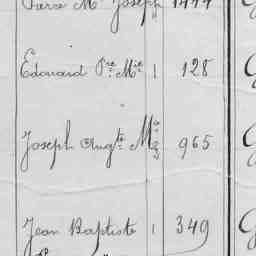 Joseph 1444
Edouard Pre Mie 1 128
Joseph Augte M 2 965
Jean Baptiste 1 349